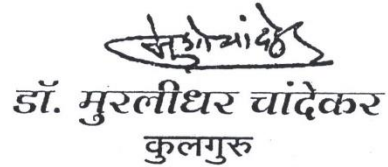 डॉ. मुरलीधर चांदेकर
कुलगुरु